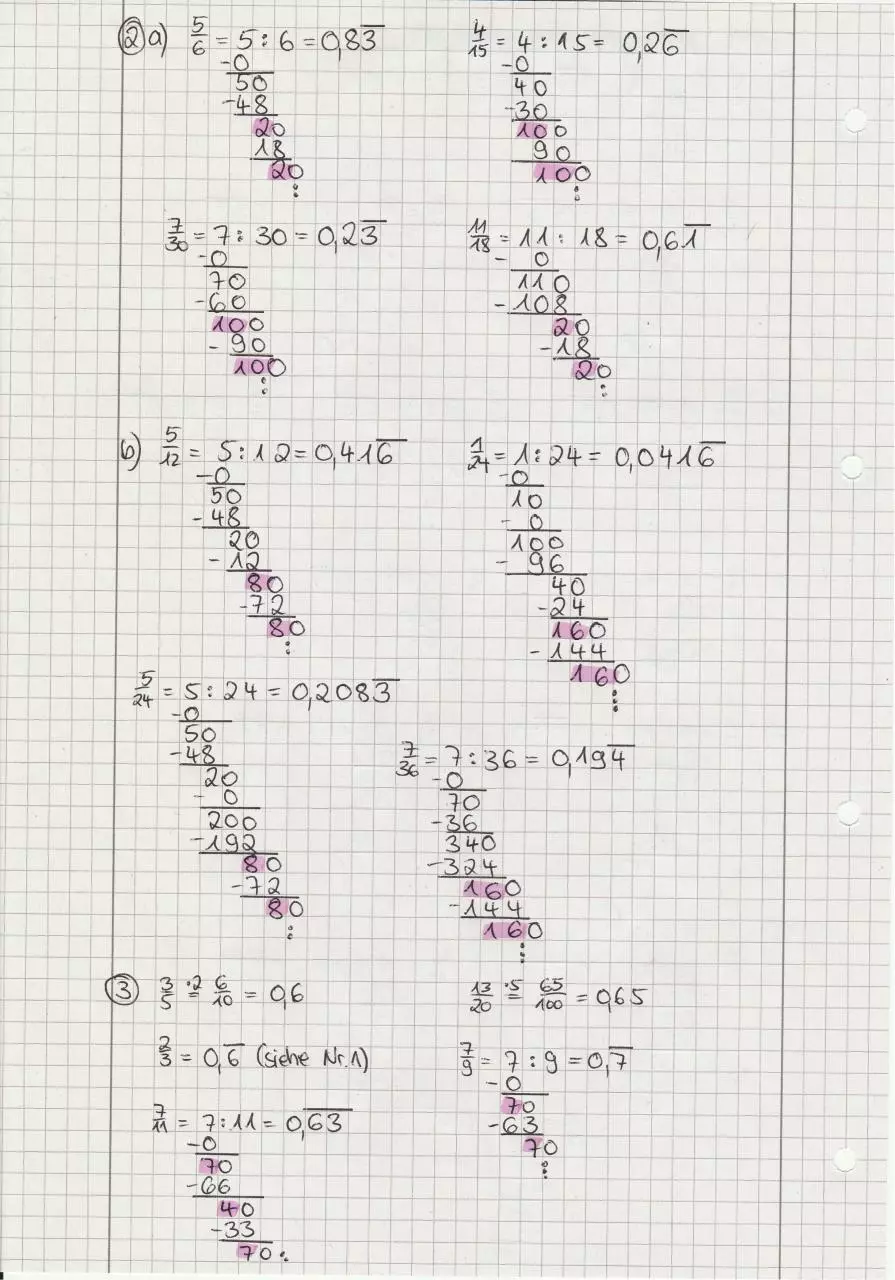 ② a) 5/6 = 5 : 6 = 0,83̅
-0
50
-48
20
18
20
⋮
4/15 = 4 : 15 = 0,26̅
-0
40
-30
100
90
100
⋮
7/30 = 7 : 30 = 0,23̅
-0
70
-60
100
- 90
100
⋮
11/18 = 11 : 18 = 0,61̅
- 0
110
- 108
20
-18
20
⋮
b) 5/12 = 5 : 12 = 0,416̅
-0
50
- 48
20
- 12
80
-72
80
⋮
1/24 = 1 : 24 = 0,0416̅
-0
10
- 0
100
- 96
40
-24
160
- 144
160
⋮
5/24 = 5 : 24 = 0,2083̅
-0
50
-48
20
- 0
200
-192
80
-72
80
⋮
7/36 = 7 : 36 = 0,194̅
-0
70
-36
340
-324
160
-144
160
⋮
③ 3/5 ·2= 6/10 = 0,6
13/20 ·5= 65/100 = 0,65
2/3 = 0,6̅ (siehe Nr. 1)
7/9 = 7 : 9 = 0,7̅
-0
70
-63
70
⋮
7/11 = 7 : 11 = 0,6̅3̅
-0
70
-66
40
-33
70 :